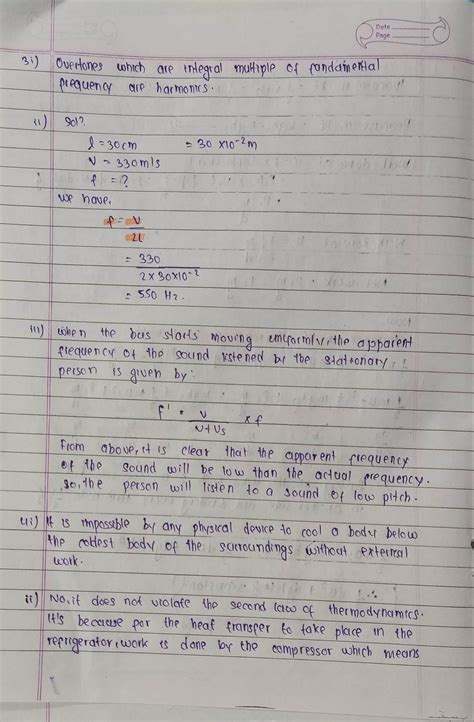 Date
Page
3i) Overtones which are integral multiple of fundamental
frequency are harmonics.
ii) Solⁿ.
l = 30cm = 30 x10⁻²m
V = 330m/s
f = ?
we have,
f = v/2l
= 330/2x30x10⁻²
= 550 Hz.
iii) when the bus starts moving uniformly, the apparent
frequency of the sound listened by the stationary
person is given by:
f' = v/v+vs x f
From above, it is clear that the apparent frequency
of the sound will be low than the actual frequency.
so, the person will listen to a sound of low pitch.
4i) It is impossible by any physical device to cool a body below
the coldest body of the surroundings without external
work.
ii) No, it does not violate the second law of thermodynamics.
It's because for the heat transfer to take place in the
refrigerator, work is done by the compressor which means